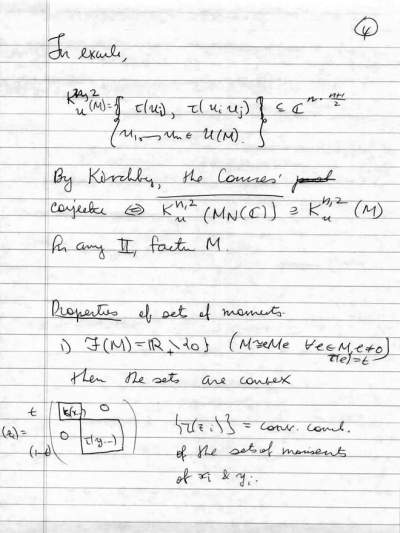 4
In example,
K_u^{n,2}(M) = { τ(u_i), τ(u_i u_j) } ⊆ ℂ^{n · (n+1)/2}
u_1, …, u_n ∈ U(M).
By Kirchby, the Connes'
conjecture ⇔ K_u^{n,2}(M_N(ℂ)) ⊇ K_u^{n,2}(M)
for any II_1 factor M.
Properties of sets of moments.
i) F(M) = ℝ_+ \ {0} (M ≅ eMe ∀e ∈ M, e ≠ 0
τ(e) = t
then the sets are convex
t τ(x..) 0
(z_i) =
(1-t) 0 τ(y...)
{τ(z_i)} = conv. comb.
of the sets of moments
of x_i & y_i.